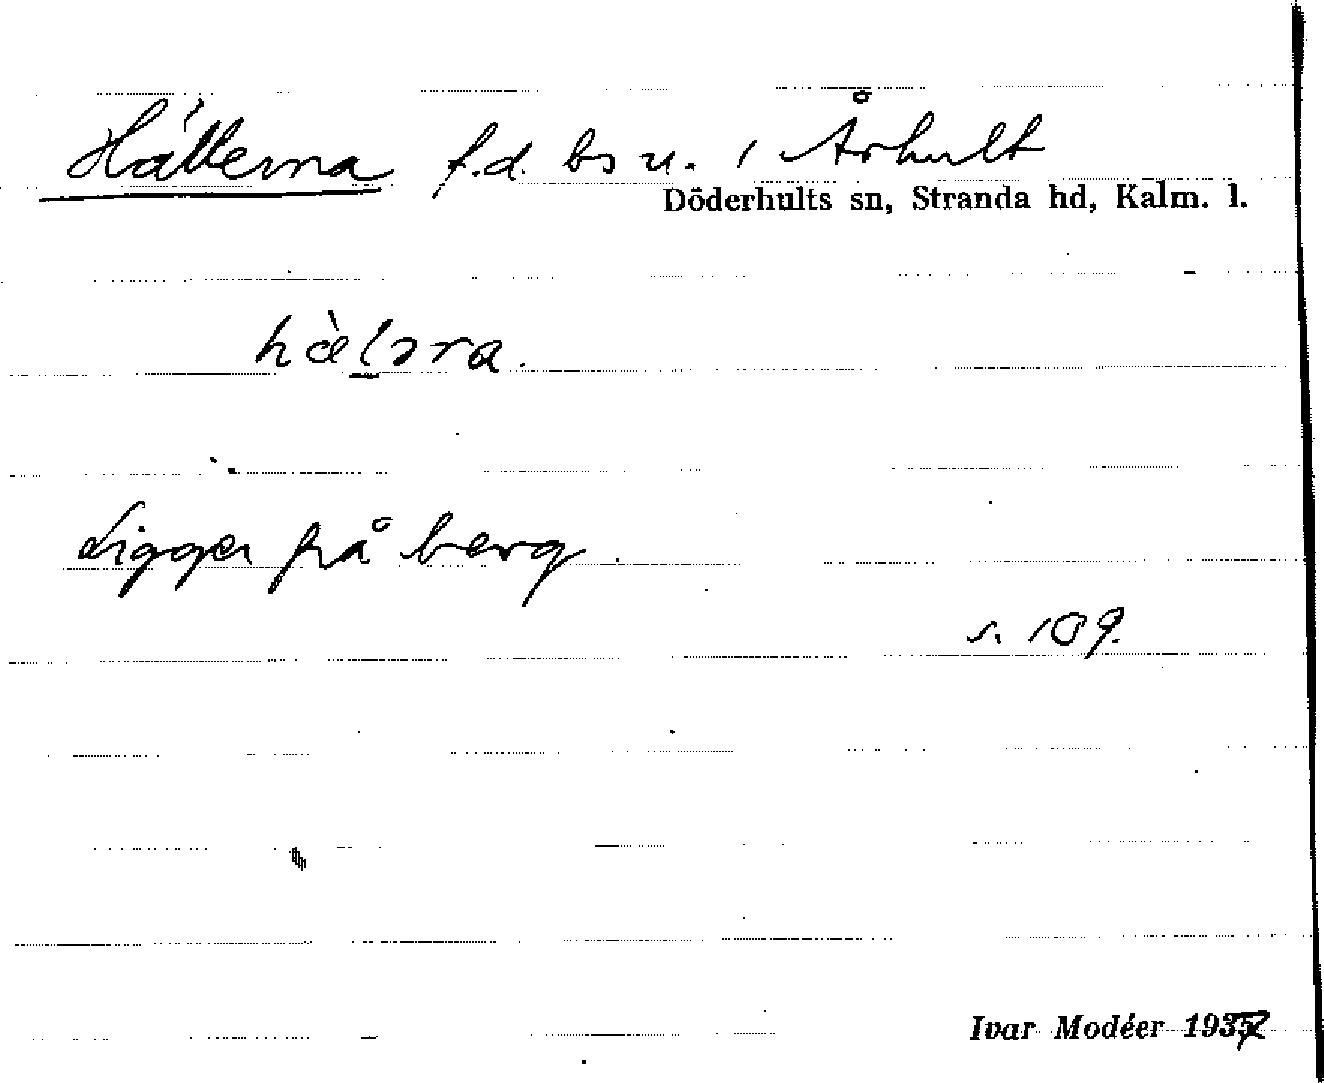 Hällerna f.d. bs u. i Århult
Döderhults sn, Stranda hd, Kalm. l.
hæ̀l̲ɔra.
Ligger på berg.
s. 109.
Ivar Modéer 1937